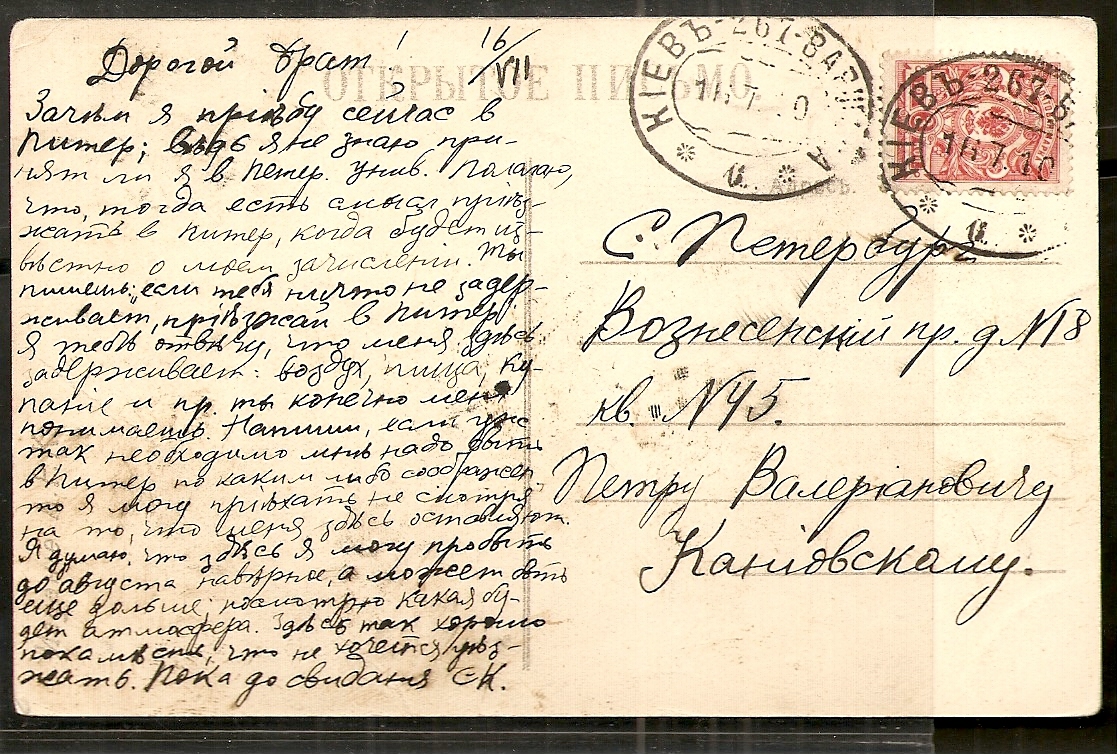 Дорогой братъ! 16/VII
ОТКРЫТОЕ ПИСЬМО.
Зачѣмъ я пріѣду сейчас в
Питер; вѣдь я не знаю при-
нят ли я в Петер. Унив. Полагаю,
что, тогда есть смысл пріѣз-
жать в Питер, когда будет из-
вѣстно о моем зачисленіи. Ты
пишешь: „если тебя ничто не задер-
живает, пріѣзжай в Питер"
Я тебѣ отвѣчу, что меня здѣсь
задерживает: воздух, пища, ку-
панье и пр. ты конечно меня
понимаешь. Напиши, если уже
так необходимо мнѣ надо быть
в Питер по каким либо соображен.
то я могу пріѣхать не смотря
на то, что меня здѣсь оставляют.
Я думаю, что здѣсь я могу пробыть
до августа навѣрное, а может быть
еще дольше; посмотрю какая бу-
дет атмосфера. Здѣсь так хорошо
пока мѣстъ, что не хочется уѣз-
жать. Пока до свиданія СК.
КІЕВЪ-267-ВАР
16 7 10
КІЕВЪ-267-В
16.7.10
С. Петербург
Вознесенскій пр. д N18
кв. N45.
Петру Валеріановичу
Каниовскому.